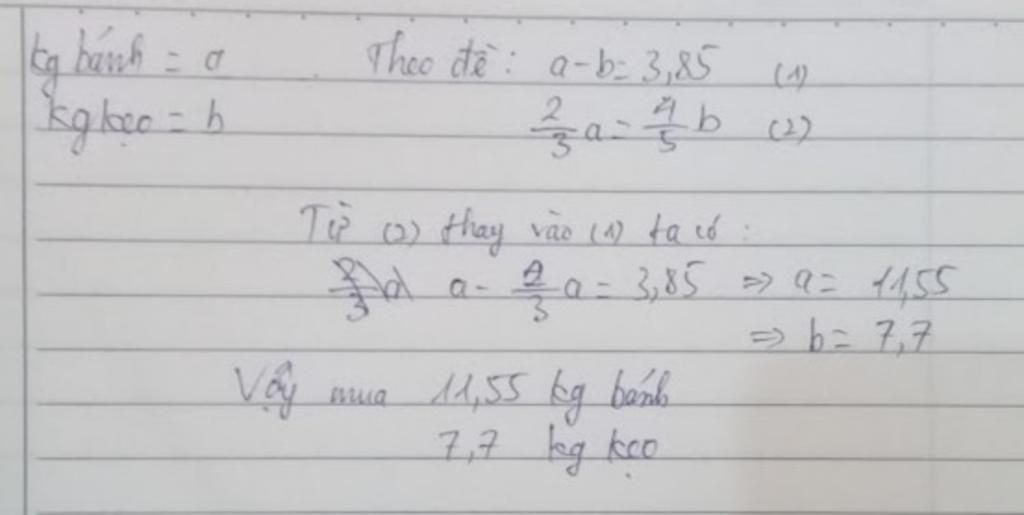 kg bánh = a Theo đề: a-b= 3,85 (1)
kg kẹo = b 2/3 a= 4/5 b (2)
Từ (2) thay vào (1) ta có :
a- 2/3 a= 3,85 => a= 11,55
=> b= 7,7
Vậy mua 11,55 kg bánh
7,7 kg kẹo